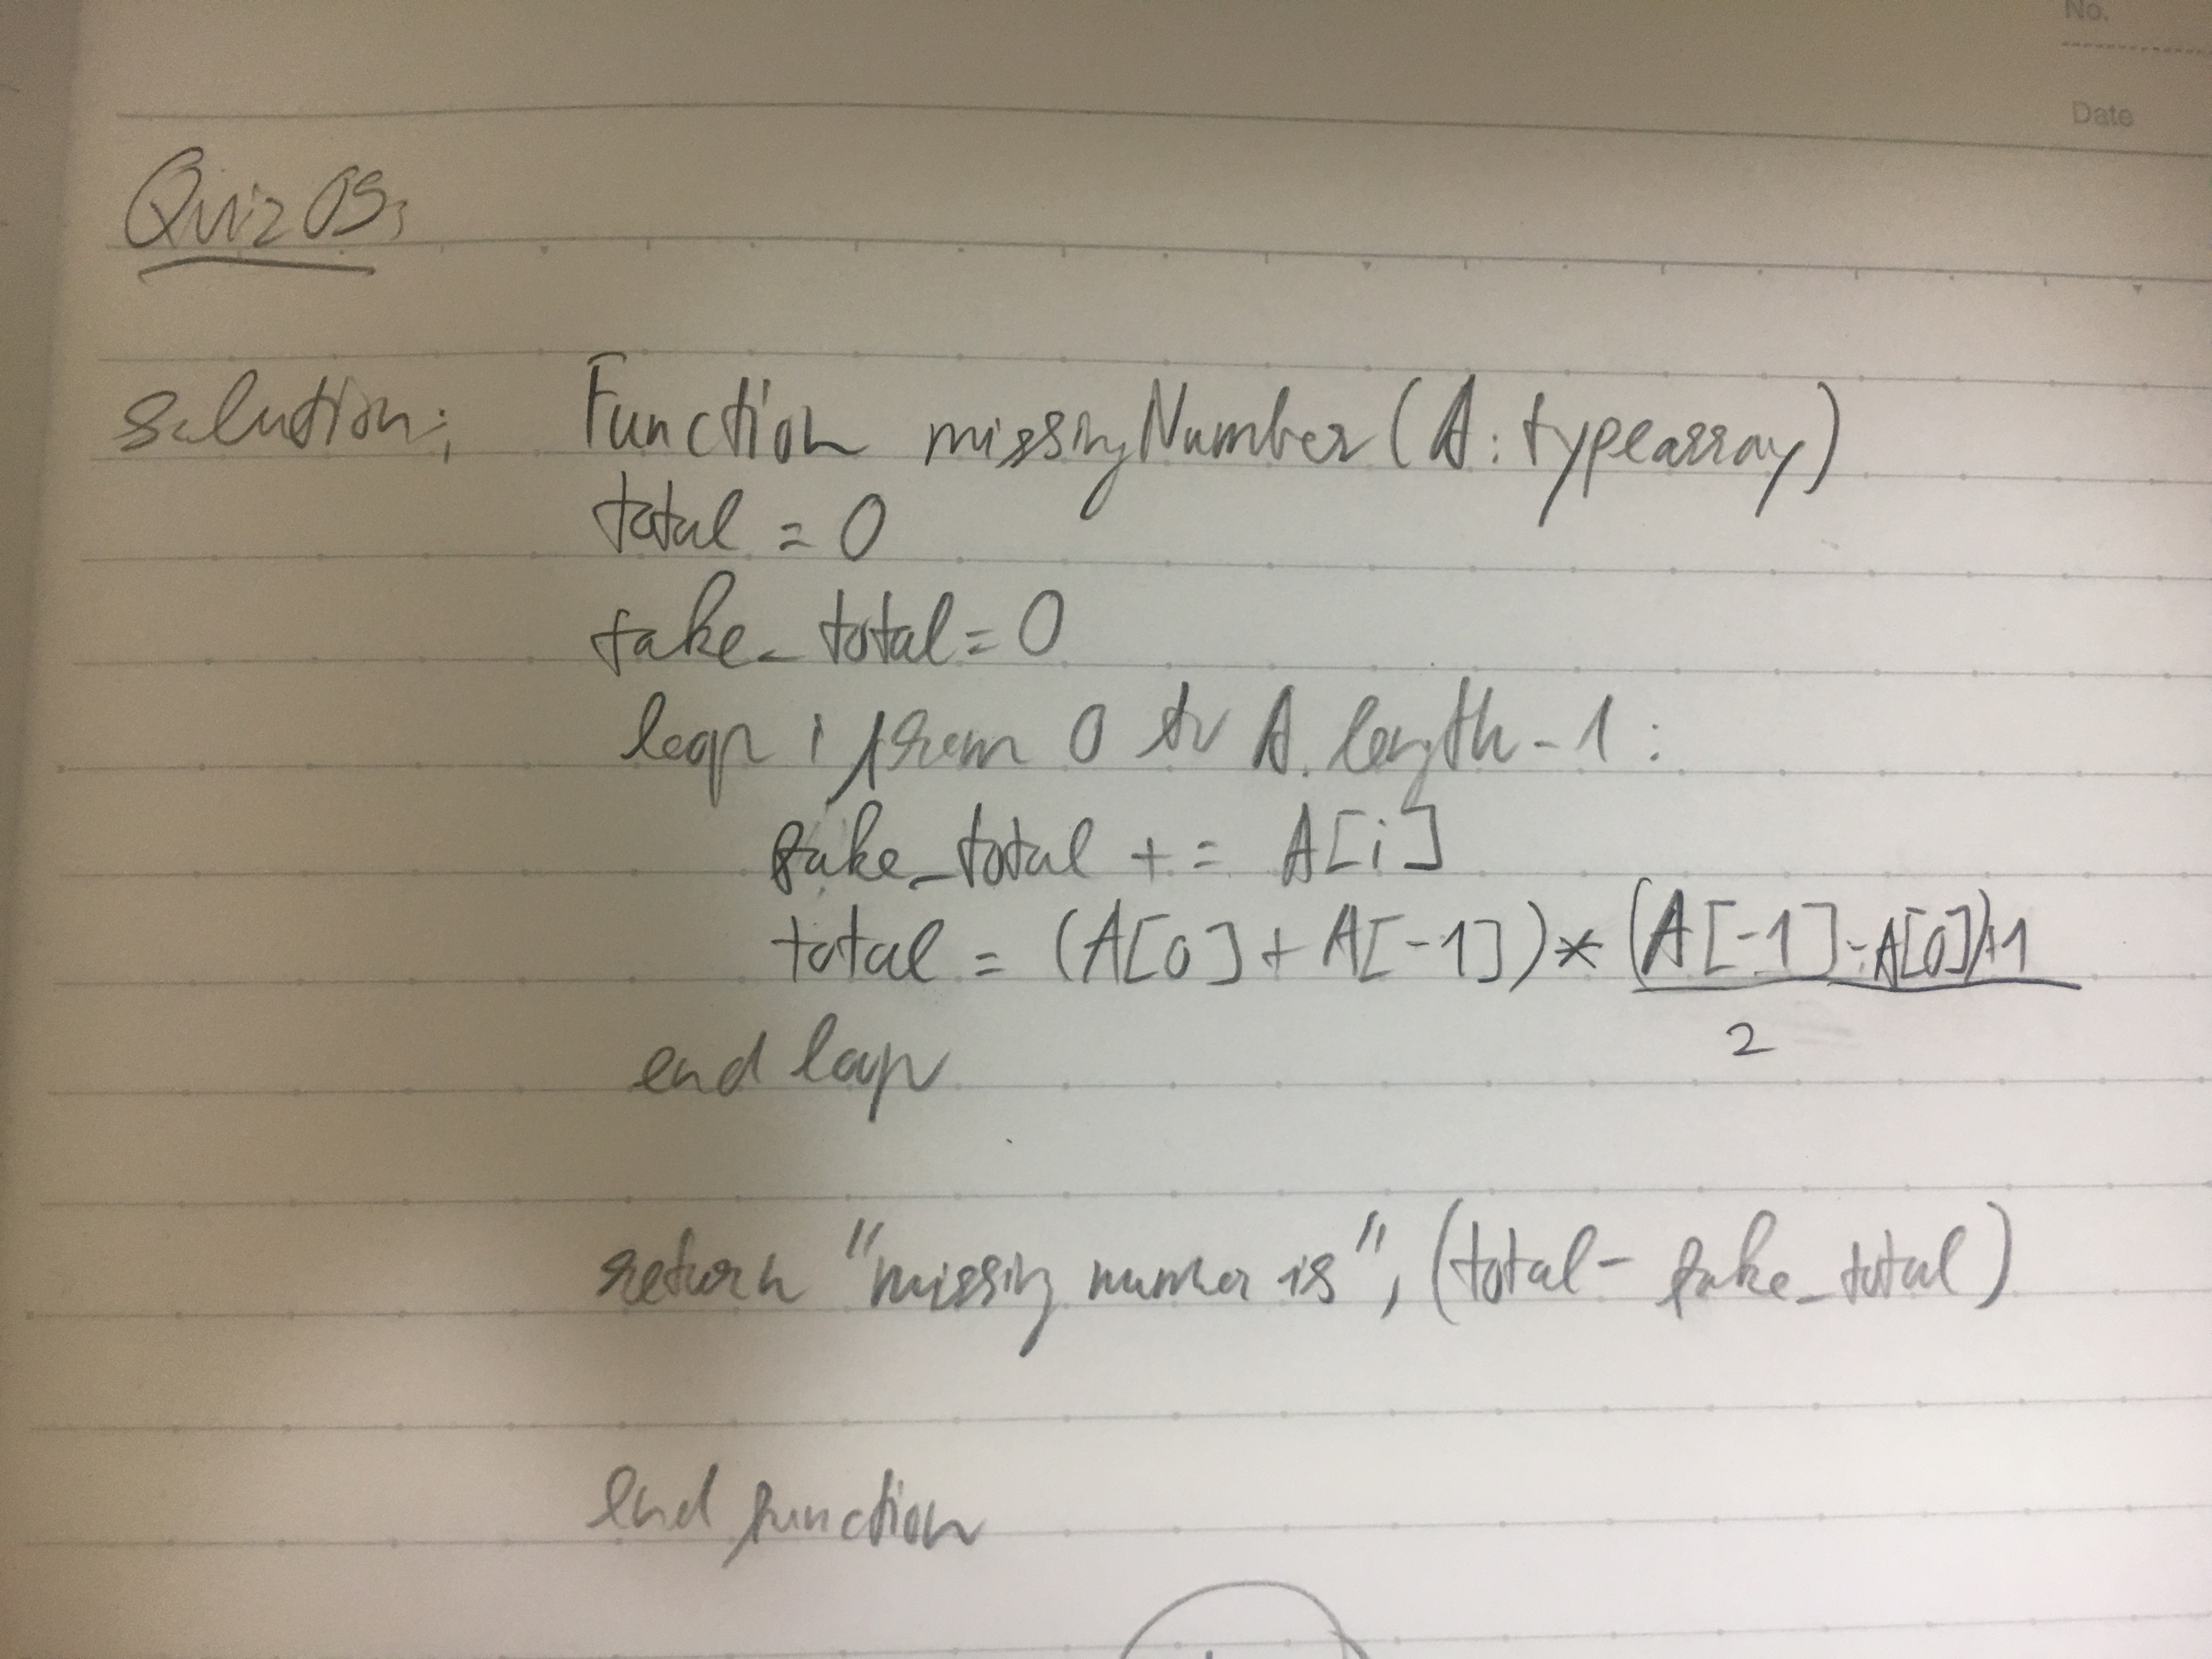 No.
Date
Quiz 05:
solution:
Function missingNumber(A: typearray)
total = 0
fake_total = 0
loop i from 0 to A.length-1:
fake_total += A[i]
total = (A[0] + A[-1]) * (A[-1] - A[0])+1
2
end loop
return "missing numer is", (total - fake_total)
end function